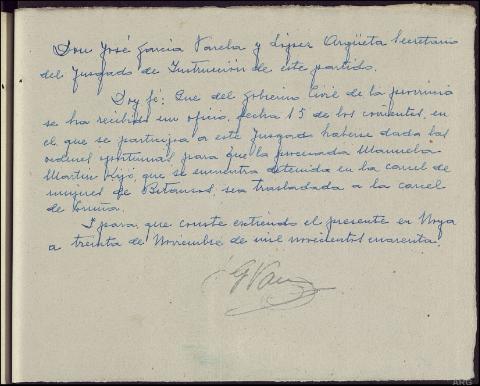 Don José Garcia Varela y López Argüeta Secretario
del Juzgado de Instrucción de este partido.
Doy fé: Que del Gobierno Civil de la provincia
se ha recibido un oficio, fecha 15 de los corrientes, en
el que se participa a este Juzgado haberse dado las
ordenes oportunas para que la procesada Manuela
Martin Lijó, que se encuentra detenida en la carcel de
mujeres de Betanzos, sea trasladada a la carcel
de Coruña.
Y para que conste extiendo el presente en Noya
a treinta de Noviembre de mil novecientos cuarenta.
ARG